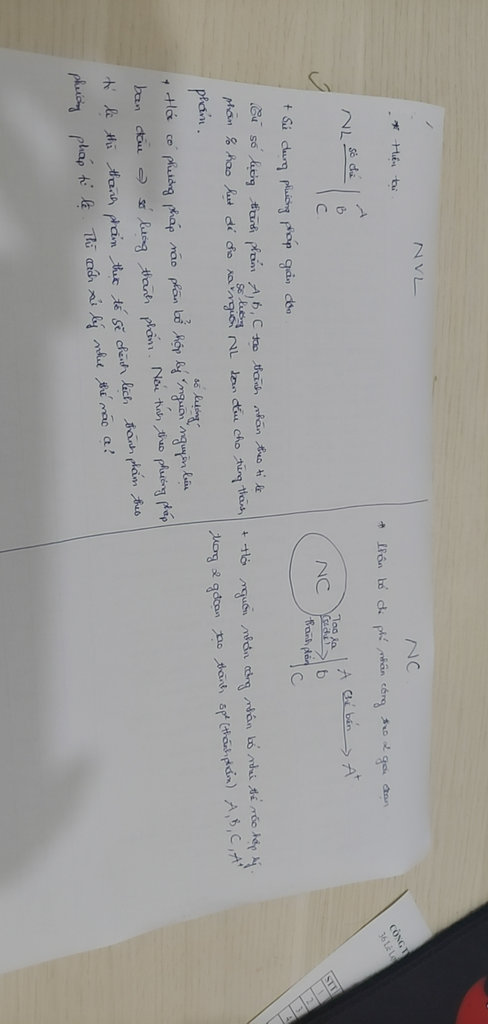 NVL
* Hiện tại:
NL sơ chế A
B
C
+ Sử dụng phương pháp giản đơn.
số lượng thành phẩm A, B, C tạo thành nhân theo tỉ lệ
phần % hao hụt để cho ra số lượng nguồn NL ban đầu cho từng thành
phẩm.
+ Hỏi có phương pháp nào phân bổ hợp lý số lượng nguồn nguyên liệu
ban đầu => số lượng thành phẩm. Nếu tính theo phương pháp
tỉ lệ thì thành phẩm thực tế sẽ chênh lệch thành phẩm theo
phương pháp tỉ lệ. Thì cách xử lý như thế nào ạ?
NC
* Phân bổ chi phí nhân công theo 2 giai đoạn
NC Tạo ra
thành phẩm
A Chế biến A+
B
C
+ Hỏi nguồn nhân công phân bổ như thế nào hợp lý.
trong 2 gđoạn tạo thành sp (thành phẩm) A, B, C, A+
CÔNG T
STT
1
2
3
4